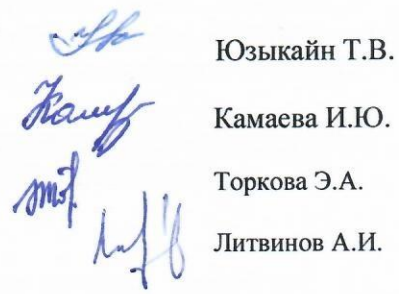 Юзыкайн Т.В.
Камаева И.Ю.
Торкова Э.А.
Литвинов А.И.